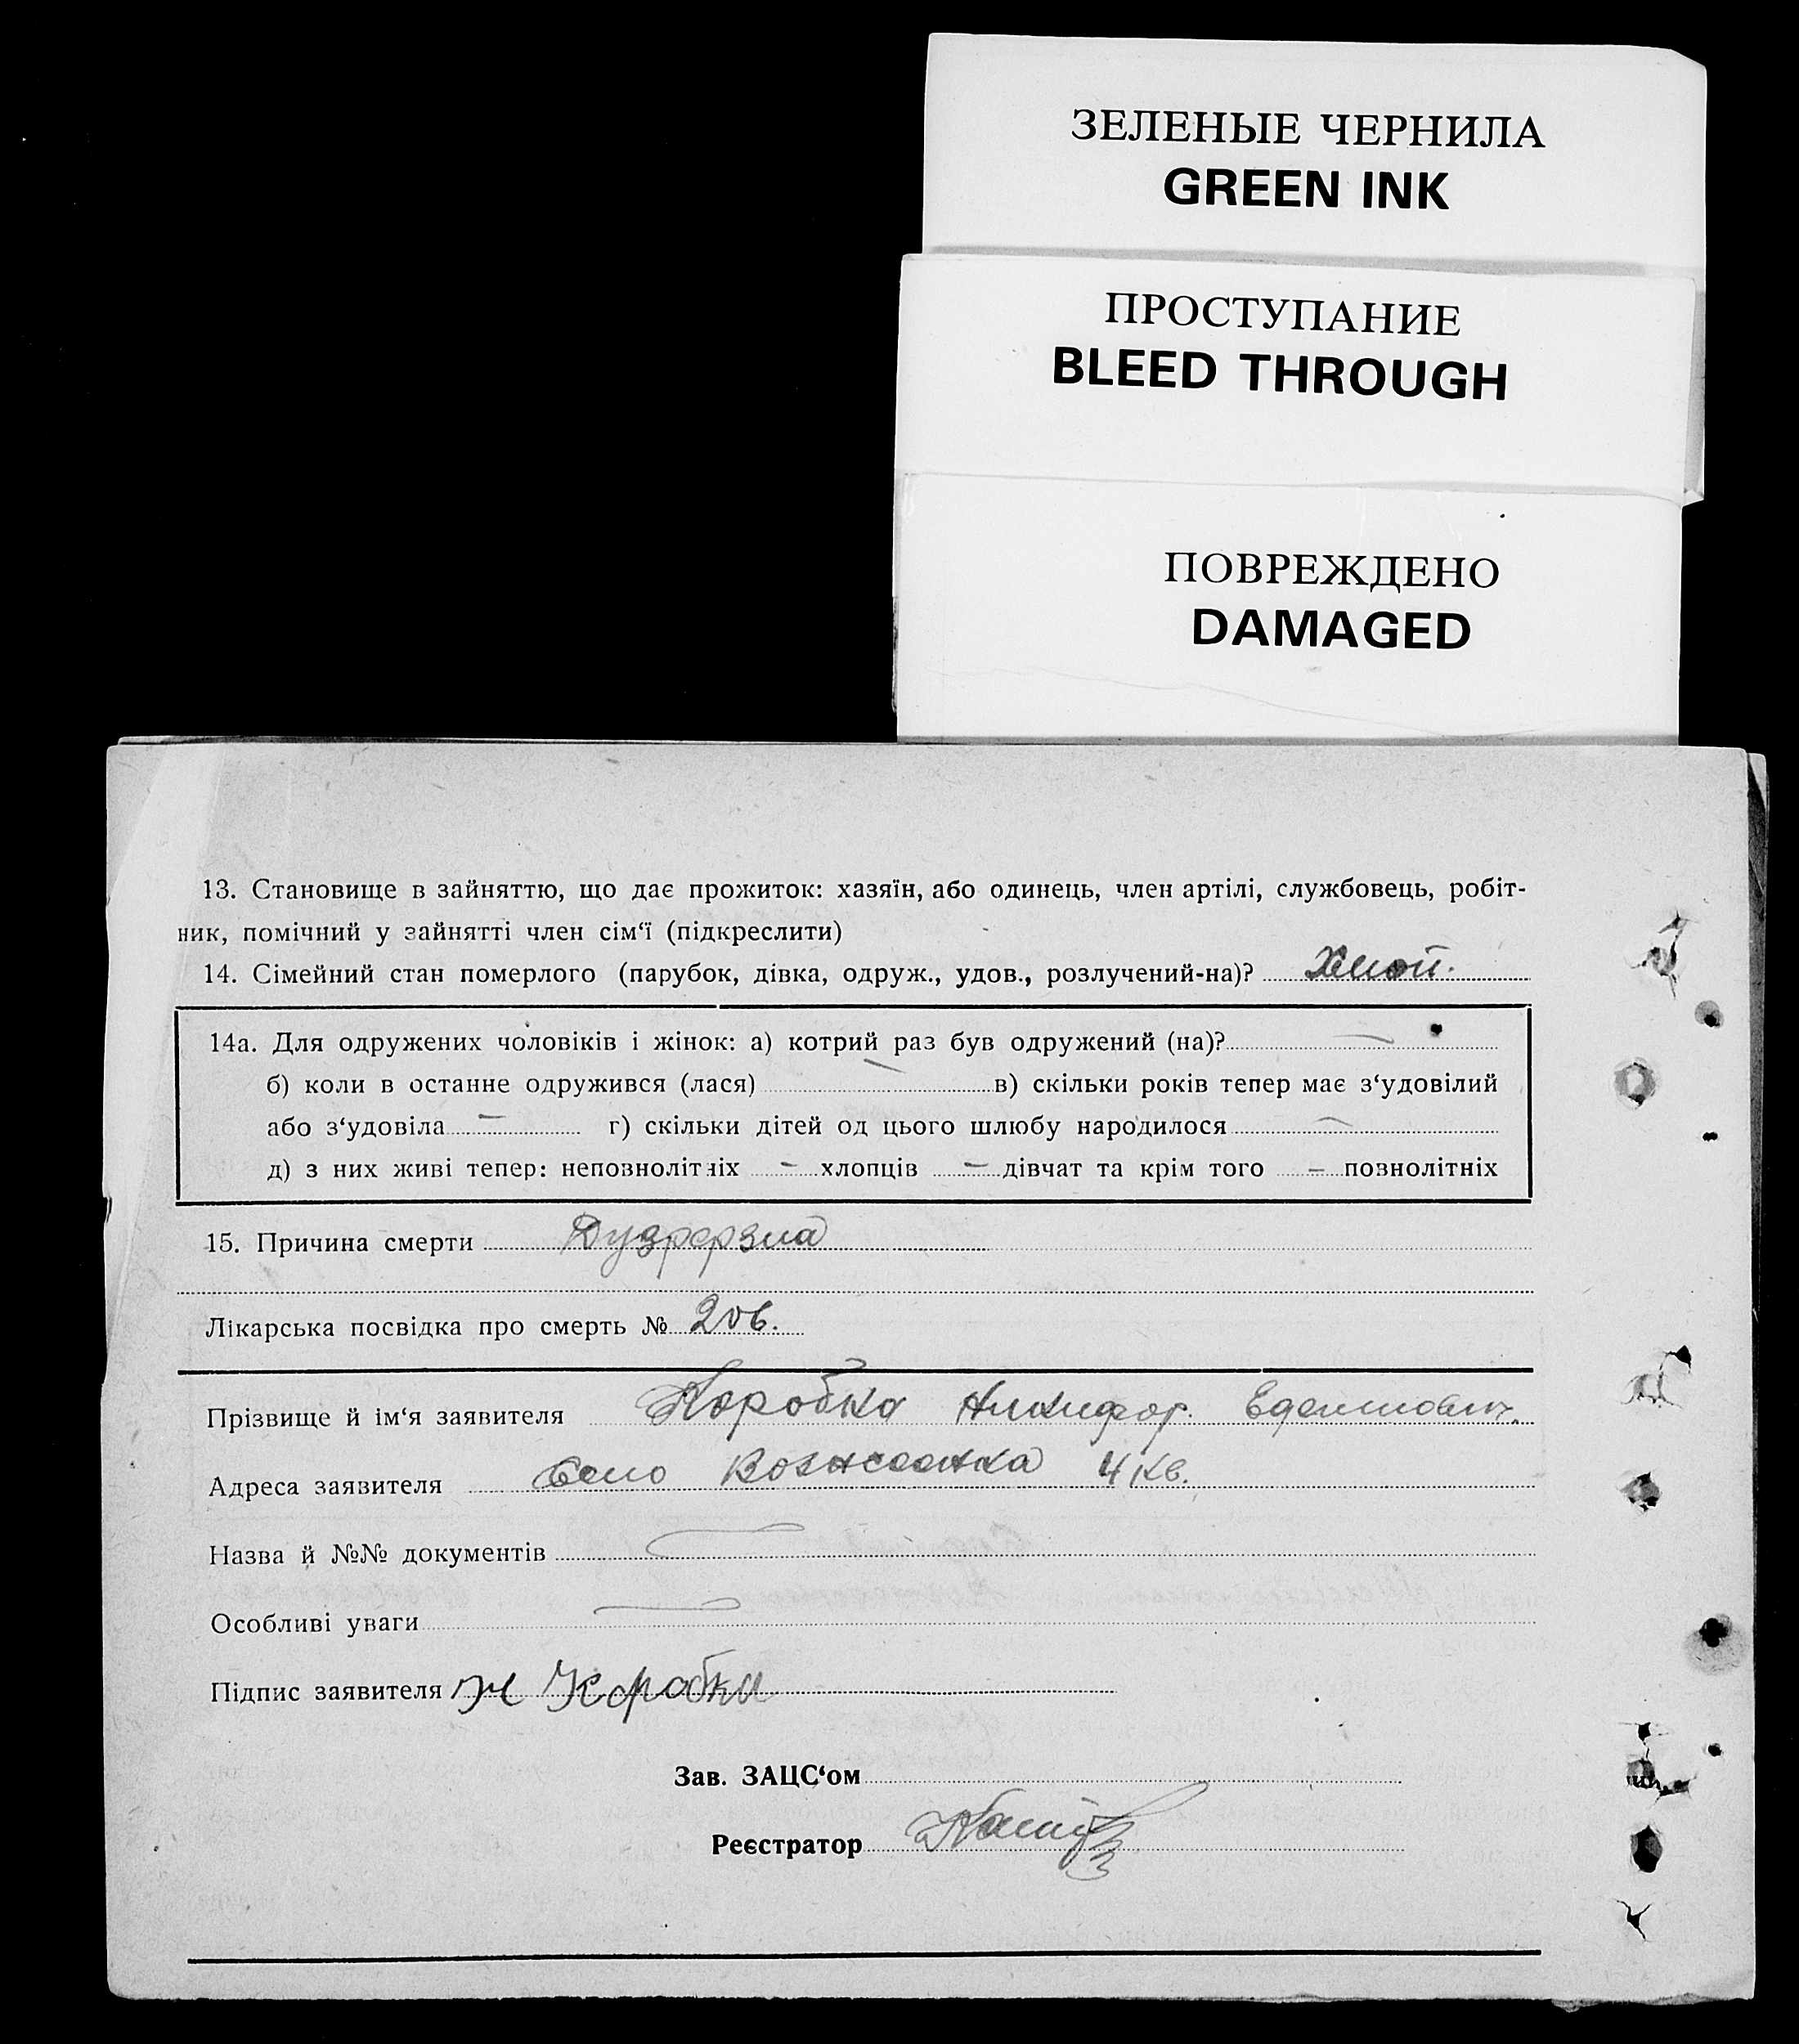 ЗЕЛЕНЫЕ ЧЕРНИЛА
GREEN INK
ПРОСТУПАНИЕ
BLEED THROUGH
ПОВРЕЖДЕНО
DAMAGED
13. Становище в зайняттю, що дає прожиток: хазяїн, або одинець, член артілі, службовець, робіт-
ник, помічний у зайнятті член сім‘ї (підкреслити)
14. Сімейний стан померлого (парубок, дівка, одруж., удов., розлучений-на)?
14а. Для одружених чоловіків і жінок: а) котрий раз був одружений (на)? —
б) коли в останне одружився (лася) — в) скільки років тепер має з‘удовілий
або з‘удовіла — г) скільки дітей од цього шлюбу народилося —
д) з них живі тепер: неповнолітніх — хлопців — дівчат та крім того — повнолітніх
15. Причина смерти
Лікарська посвідка про смерть № 206.
Прізвище й ім‘я заявителя Коробка Никифор
Адреса заявителя Село 4 кв.
Назва й №№ документів —
Особливі уваги —
Підпис заявителя Н Коробка
Зав. ЗАЦС‘ом
Реєстратор